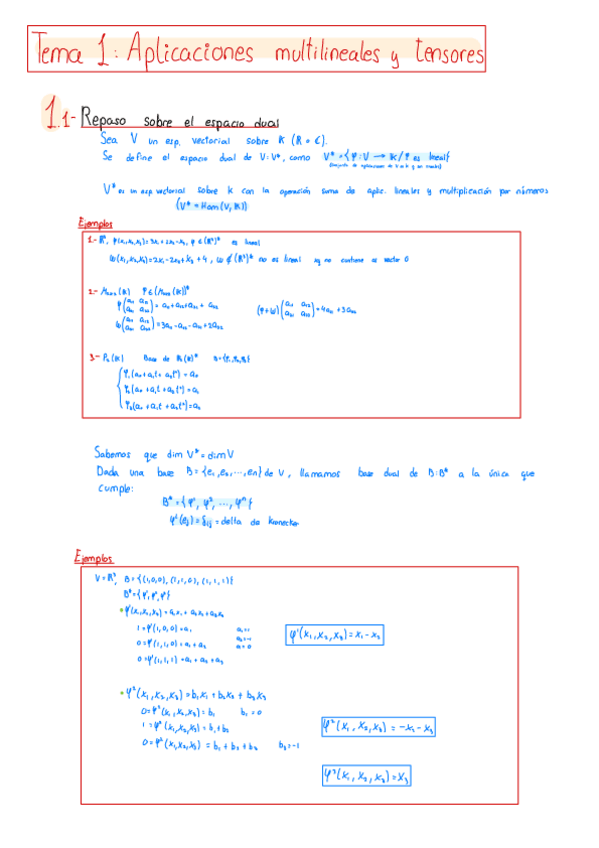 Tema 1: Aplicaciones multilineales y tensores
1.1- Repaso sobre el espacio dual
Sea V un esp. vectorial sobre K (R o C).
Se define el espacio dual de V: V*, como V* = {φ: V → K / φ es lineal}
V* es un esp vectorial sobre K con la operación suma de aplic. lineales y multiplicación por números
(V* = Hom(V, K))
Ejemplos
1.- R³, φ(x₁,x₂,x₃) = 3x₁+2x₂-x₃, φ ∈ (R³)* es lineal
ω(x₁,x₂,x₃) = 2x₁-2x₂+x₃+4, ω ∉ (R³)* no es lineal xq no contiene al vector 0
2.- M₂ₓ₂(K) φ ∈ (M₂ₓ₂(K))*
φ(a₁₁ a₁₂ a₂₁ a₂₂) = a₁₁+a₁₂+a₂₁+a₂₂ (φ+ω)(a₁₁ a₁₂ a₂₁ a₂₂) = 4a₁₁+3a₂₂
ω(a₁₁ a₁₂ a₂₁ a₂₂) = 3a₁₁-a₁₂-a₂₁+2a₂₂
3- P₂(K) Base de P₂(K)*
φ₁(a₀+a₁t+a₂t²) = a₀
φ₂(a₀+a₁t+a₂t²) = a₁
φ₃(a₀+a₁t+a₂t²) = a₂
Sabemos que dim V* = dim V
Dada una base B = {e₁,e₂,...,en} de V, llamamos base dual de B: B* a la única que
cumple:
B* = {φ¹, φ², ..., φⁿ}
φⁱ(eⱼ) = δᵢⱼ = delta de Kronecker
Ejemplos
V = R³, B = {(1,0,0), (1,1,0), (1,1,1)}
B* = {φ¹, φ², φ³}
• φ¹(x₁,x₂,x₃) = a₁x₁ + a₂x₂ + a₃x₃
1 = φ¹(1,0,0) = a₁ a₁=1
0 = φ¹(1,1,0) = a₁ + a₂ a₂=-1
φ¹(x₁,x₂,x₃) = x₁ - x₂
0 = φ¹(1,1,1) = a₁ + a₂ + a₃
• φ²(x₁,x₂,x₃) = b₁x₁ + b₂x₂ + b₃x₃
0 = φ²(x₁,x₂,x₃) = b₁ b₁ = 0
1 = φ²(x₁,x₂,x₃) = b₁+b₂
φ²(x₁,x₂,x₃) = -x₂ - x₃
0 = φ²(x₁,x₂,x₃) = b₁ + b₂ + b₃ b₃ = -1
φ³(x₁,x₂,x₃) = x₃